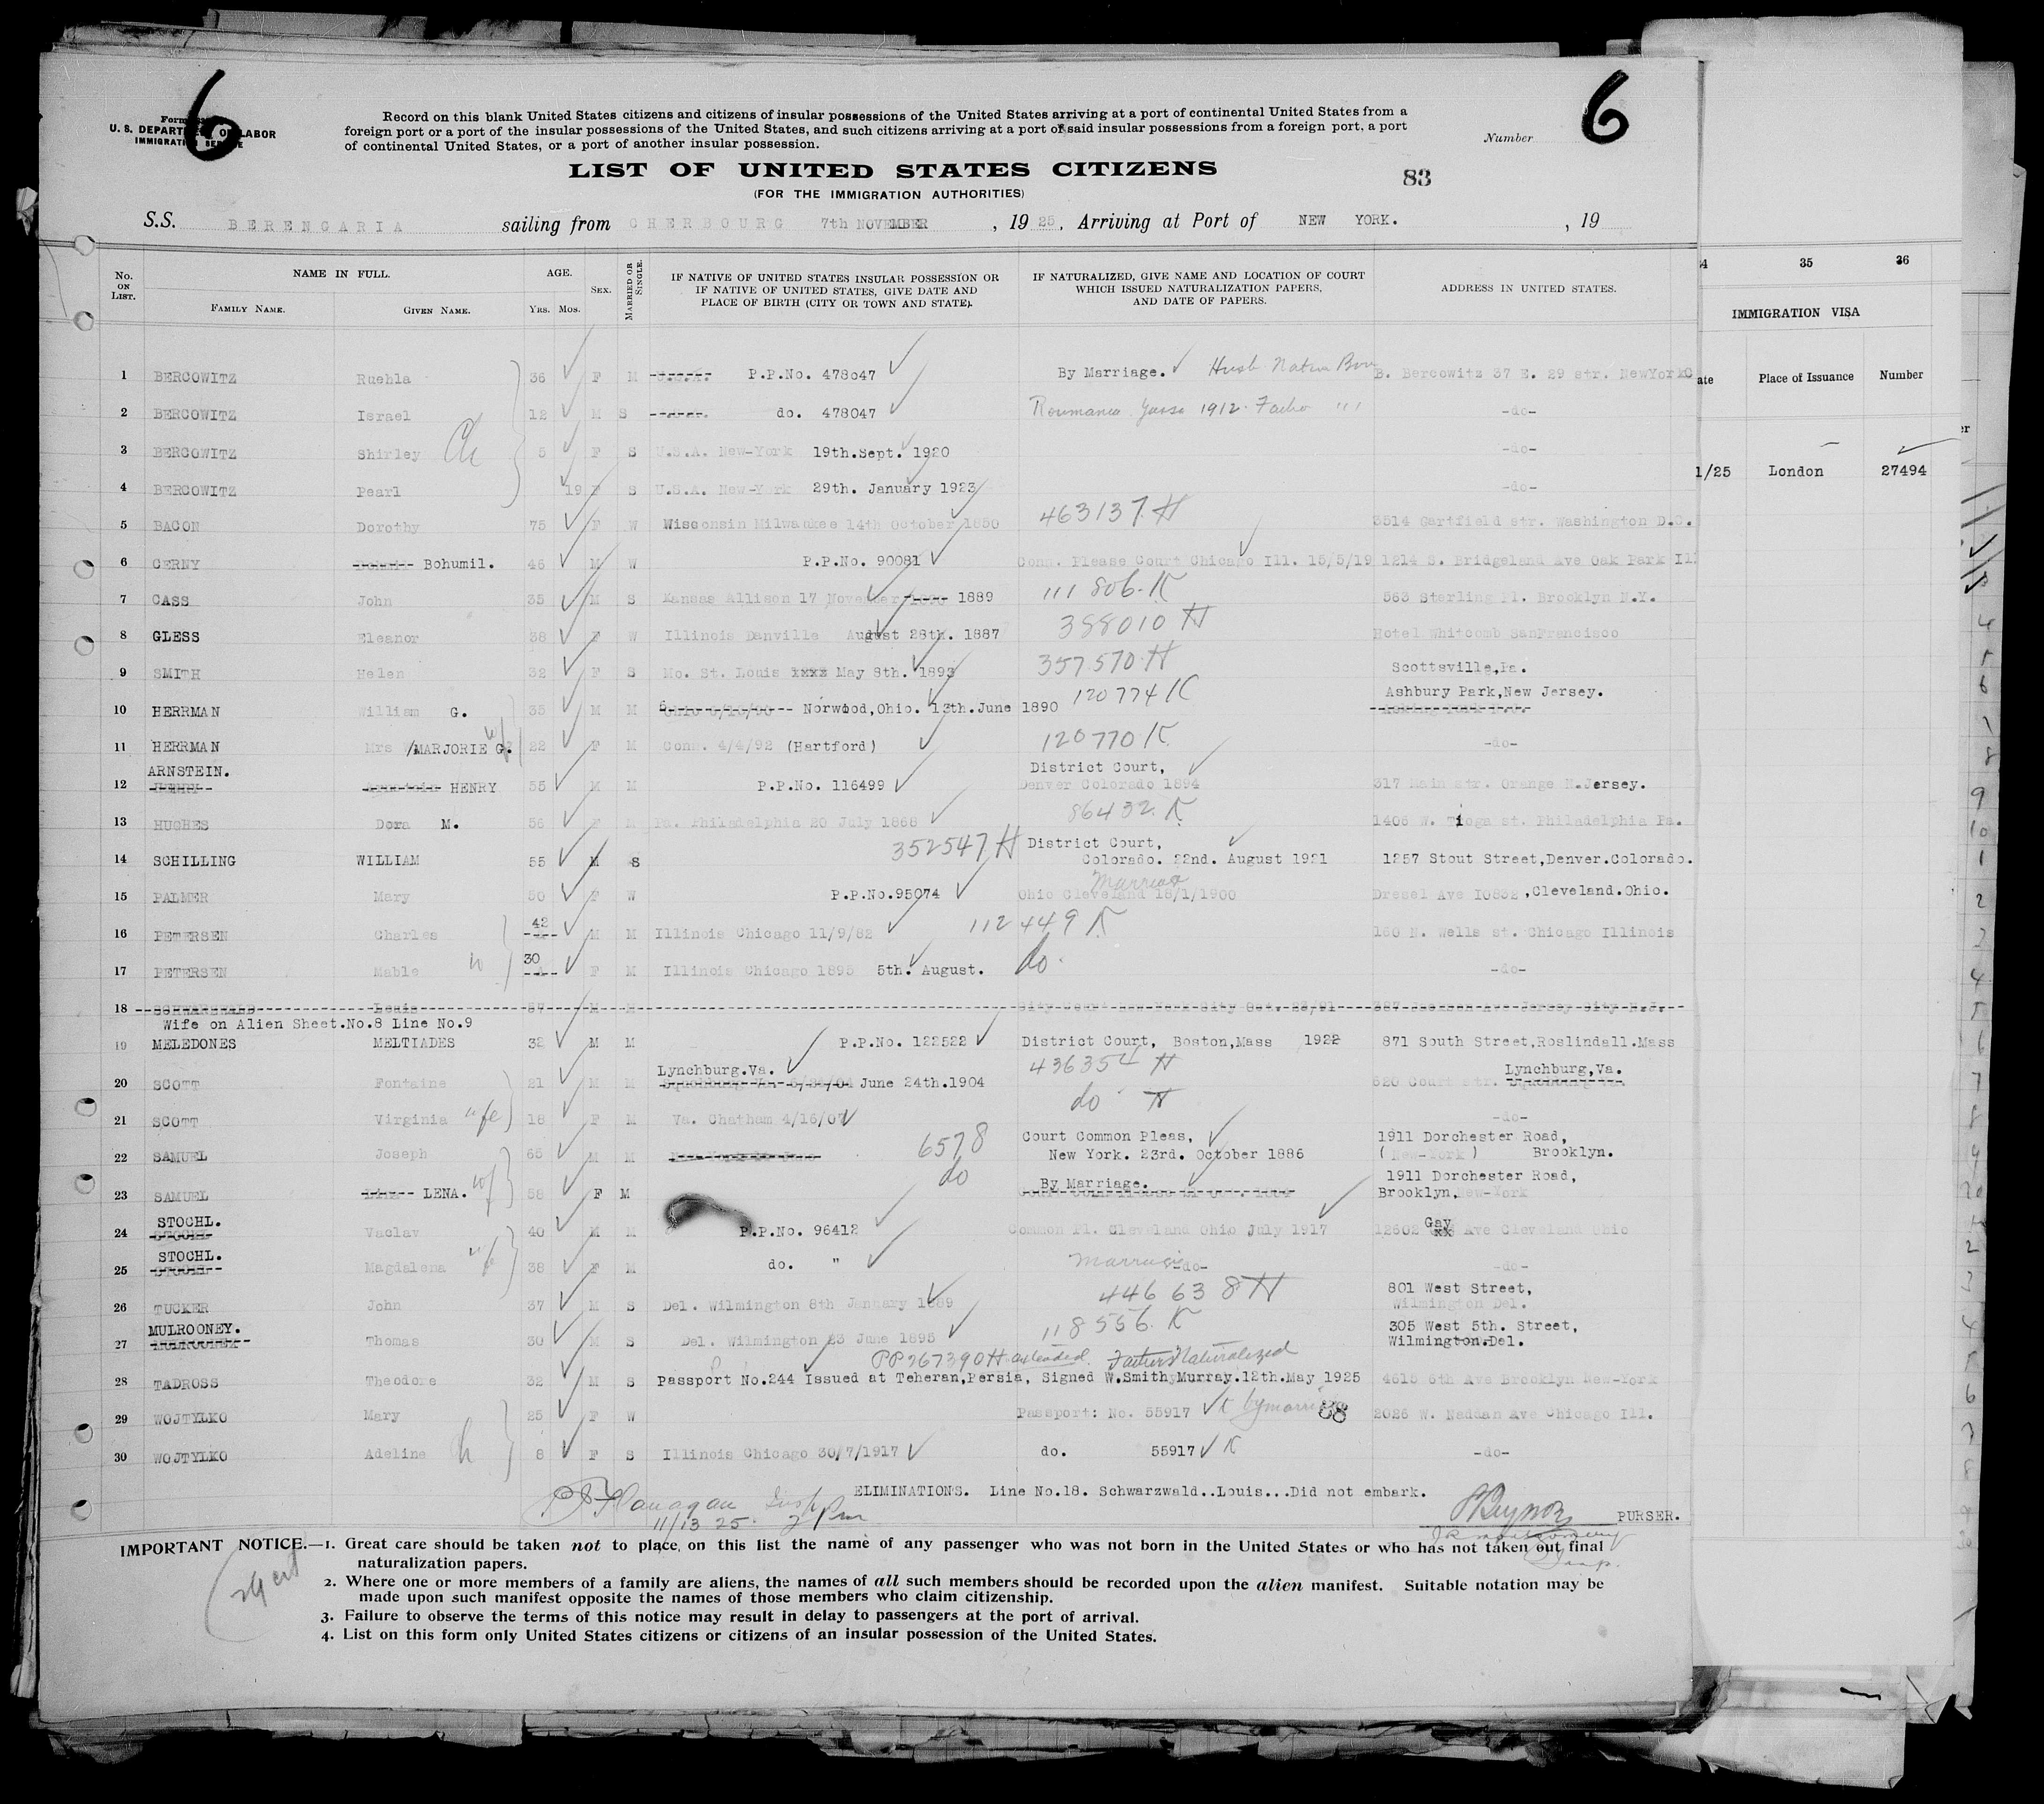 6
6
Form
U. S. DEPARTMENT OF LABOR
IMMIGRATION SERVICE
Record on this blank United States citizens and citizens of insular possessions of the United States arriving at a port of continental United States from a
foreign port or a port of the insular possessions of the United States, and such citizens arriving at a port of said insular possessions from a foreign port, a port
of continental United States, or a port of another insular possession.
Number
LIST OF UNITED STATES CITIZENS
83
(FOR THE IMMIGRATION AUTHORITIES)
S.S. BERENGARIA sailing from CHERBOURG 7th NOVEMBER , 19 25, Arriving at Port of NEW YORK. , 19
No. ON LIST. NAME IN FULL. FAMILY NAME. GIVEN NAME. AGE. YRS. MOS. SEX. MARRIED OR SINGLE. IF NATIVE OF UNITED STATES INSULAR POSSESSION OR IF NATIVE OF UNITED STATES, GIVE DATE AND PLACE OF BIRTH (CITY OR TOWN AND STATE). IF NATURALIZED, GIVE NAME AND LOCATION OF COURT WHICH ISSUED NATURALIZATION PAPERS, AND DATE OF PAPERS. ADDRESS IN UNITED STATES.
35 36
IMMIGRATION VISA
Place of Issuance Number
1/25 London 27494
1 BERCOWITZ Ruehla 36 F M P.P.No. 478047 By Marriage. Husb Native Born B. Bercowitz 37 E. 29 str. NewYork
2 BERCOWITZ Israel 12 M S do. 478047 Roumania Jassa 1912 -do-
3 BERCOWITZ Shirley Ch 5 F S U.S.A. New-York 19th.Sept. 1920 -do-
4 BERCOWITZ Pearl 19 F S U.S.A. New-York 29th. January 1923 -do-
5 BACON Dorothy 75 F W Wisconsin Milwaukee 14th October 1850 463137 H 3514 Gartfield str. Washington D.C.
6 CERNY Bohumil. 46 M W P.P.No. 90081 Conn. Please Court Chicago Ill. 15/5/19 1214 S. Bridgeland Ave Oak Park Il
7 CASS John 35 M S Kansas Allison 17 November 1889 111806-K 563 Sterling Pl. Brooklyn N.Y.
8 GLESS Eleanor 38 F W Illinois Danville August 28th. 1887 388010 H Hotel Whitcomb SanFrancisco
9 SMITH Helen 32 F S Mo. St. Louis xxxx May 8th. 1893 357570-H Scottsville,Pa.
10 HERRMAN William G. 35 M M Norwood,Ohio. 13th.June 1890 120774 K Ashbury Park,New Jersey.
11 HERRMAN Mrs MARJORIE G. wf 22 F M Conn. 4/4/92 (Hartford) 120770 K -do-
12 ARNSTEIN. HENRY 55 M M P.P.No. 116499 District Court, Denver Colorado 1894 317 Main str. Orange N.Jersey.
13 HUGHES Dora M. 56 F M Pa. Philadelphia 20 July 1868 86432 K 1406 W. Tioga st. Philadelphia Pa.
14 SCHILLING WILLIAM 55 M S 352547 H District Court, Colorado. 22nd. August 1921 1257 Stout Street,Denver.Colorado.
15 PALMER Mary 50 F W P.P.No.95074 Marriage Ohio Cleveland 15/1/1900 Drexel Ave 10832 ,Cleveland.Ohio.
16 PETERSEN Charles 42 M M Illinois Chicago 11/9/82 112449 K 160 N. Wells st. Chicago Illinois
17 PETERSEN Mable w 30 F M Illinois Chicago 1895 5th. August. do. -do-
18 SCHWARZWALD Louis 57 M M City Court New York City Oct. 387 Jackson Ave Jersey City N.J.
Wife on Alien Sheet.No.8 Line No.9
19 MELEDONES MELTIADES 32 M M P.P.No. 122522 District Court, Boston,Mass 1922 871 South Street,Roslindall.Mass
20 SCOTT Fontaine 21 M M Lynchburg.Va. June 24th.1904 436354 H 520 Court str. Lynchburg,Va.
21 SCOTT Virginia wfe 18 F M Va. Chatham 4/16/07 do H -do-
22 SAMUEL Joseph 65 M M 6578 Court Common Pleas, New York. 23rd. October 1886 1911 Dorchester Road, (New-York) Brooklyn.
23 SAMUEL LENA. wf 58 F M do By Marriage. 1911 Dorchester Road, Brooklyn,New-York
24 STOCHL. Vaclav 40 M M P.P.No. 96412 Common Pl. Cleveland Ohio July 1917 12602 Gay Ave Cleveland Ohio
25 STOCHL. Magdalena wfe 38 F M do. " Marriage -do- -do-
26 TUCKER John 37 M S Del. Wilmington 8th January 1889 446638 H 801 West Street, Wilmington Del.
27 MULROONEY. Thomas 30 M S Del. Wilmington 23 June 1895 118556 K 305 West 5th. Street, Wilmington.Del.
PP267390H extended. Father's Naturalized
28 TADROSS Theodore 32 M S Passport No.244 Issued at Teheran,Persia, Signed W.Smith Murray.12th.May 1925 4615 6th Ave Brooklyn New-York
29 WOJTYLKO Mary 25 F W Passport: No. 55917 K by marriage 68 2026 W. Naddan Ave Chicago Ill.
30 WOJTYLKO Adeline ch 8 F S Illinois Chicago 30/7/1917 do. 55917 K -do-
ELIMINATIONS. Line No.18. Schwarzwald..Louis...Did not embark.
Flanagan Insp
11/13 25. 2 pm
PURSER.
J R Montgomery
Insp.
IMPORTANT NOTICE.—1. Great care should be taken not to place on this list the name of any passenger who was not born in the United States or who has not taken out final
naturalization papers.
2. Where one or more members of a family are aliens, the names of all such members should be recorded upon the alien manifest. Suitable notation may be
made upon such manifest opposite the names of those members who claim citizenship.
3. Failure to observe the terms of this notice may result in delay to passengers at the port of arrival.
4. List on this form only United States citizens or citizens of an insular possession of the United States.
29 cit